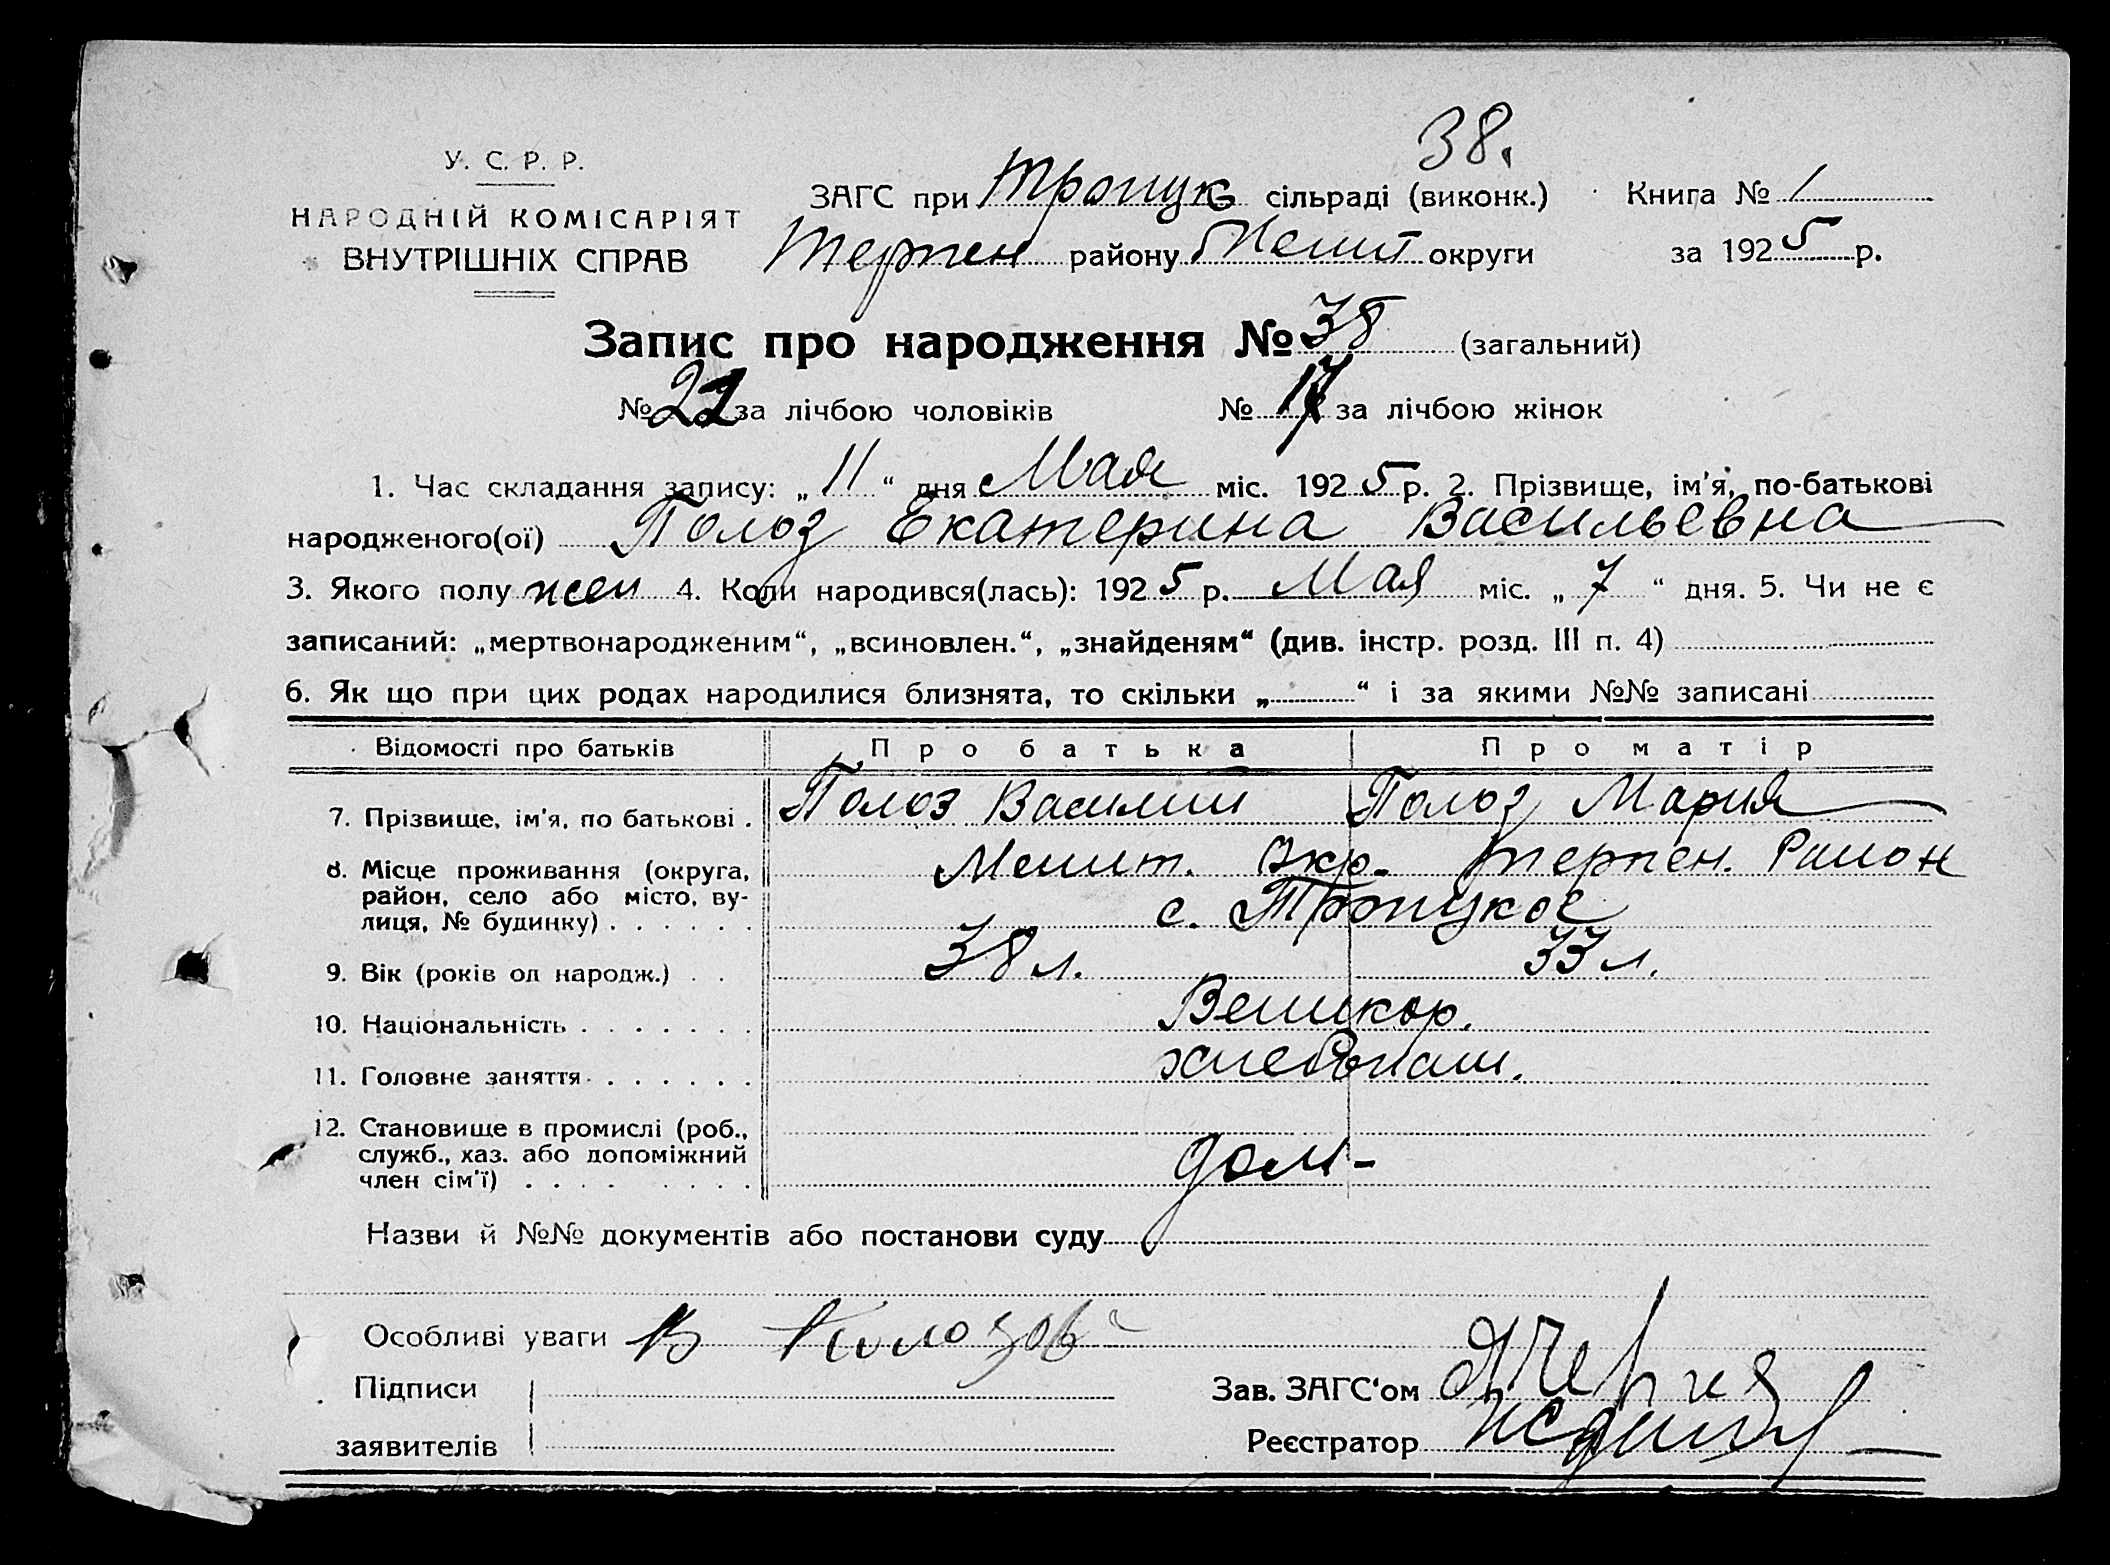 38.
У. С. Р. Р.
НАРОДНІЙ КОМІСАРІЯТ
ВНУТРІШНІХ СПРАВ
ЗАГС при Троицк сільраді (виконк.) Книга № 1
Терпен району Мелит округи за 1925 р.
Запис про народження № 38 (загальний)
№ за лічбою чоловіків № 17 за лічбою жінок
1. Час складання запису: „ 11 “ дня Мая міс. 1925 р. 2. Прізвище, ім'я, по-батькові
народженого(ої) Полоз Екатерина Васильевна
3. Якого полу жен 4. Коли народився(лась): 1925 р. Мая міс. „ 7 “ дня. 5. Чи не є
записаний: „мертвонародженим“, „всиновлен.“, „знайденям“ (див. інстр. розд. III п. 4)
6. Як що при цих родах народилися близнята, то скільки „ “ і за якими №№ записані
Відомості про батьків Про батька Про матір
7. Прізвище, ім'я, по батькові . Полоз Василии Полоз Мария
8. Місце проживання (округа, Мелит. Окр. Терпен. Раион
район, село або місто, ву-
лиця, № будинку) . . . . . . с. Троицкое
9. Вік (років од народж.) . . 38 л. 33 л.
10. Національність . . . . . . . Великор.
11. Головне заняття . . . . . . хлебопаш.
12. Становище в промислі (роб.,
служб., хаз. або допоміжний дом-
член сім'ї) . . . . . . . . .
Назви й №№ документів або постанови суду
Особливі уваги В Полозов
Підписи Зав. ЗАГС'ом
заявителів Реєстратор